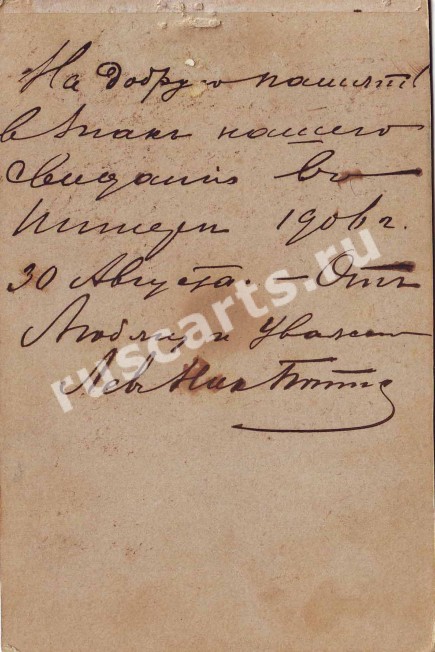 На добрую память
в знакъ нашего
Свиданія въ
Питере 1906 г.
30 Августа. – Отъ
Любящ и Уважаю
Лев Ник
ruscarts.ru